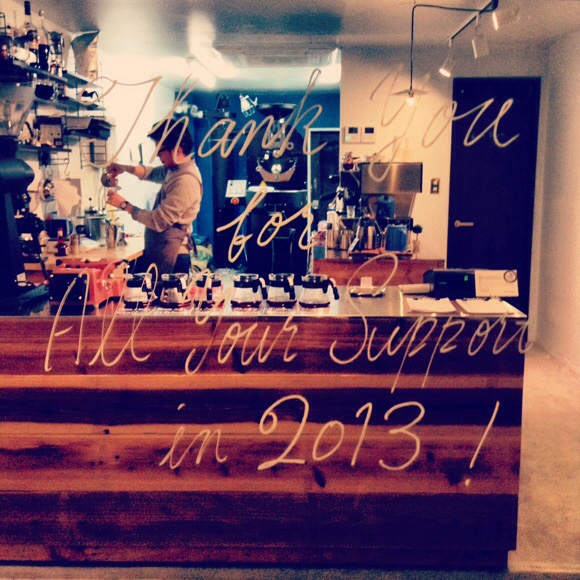 Thank You
for
All Your Support
in 2013!